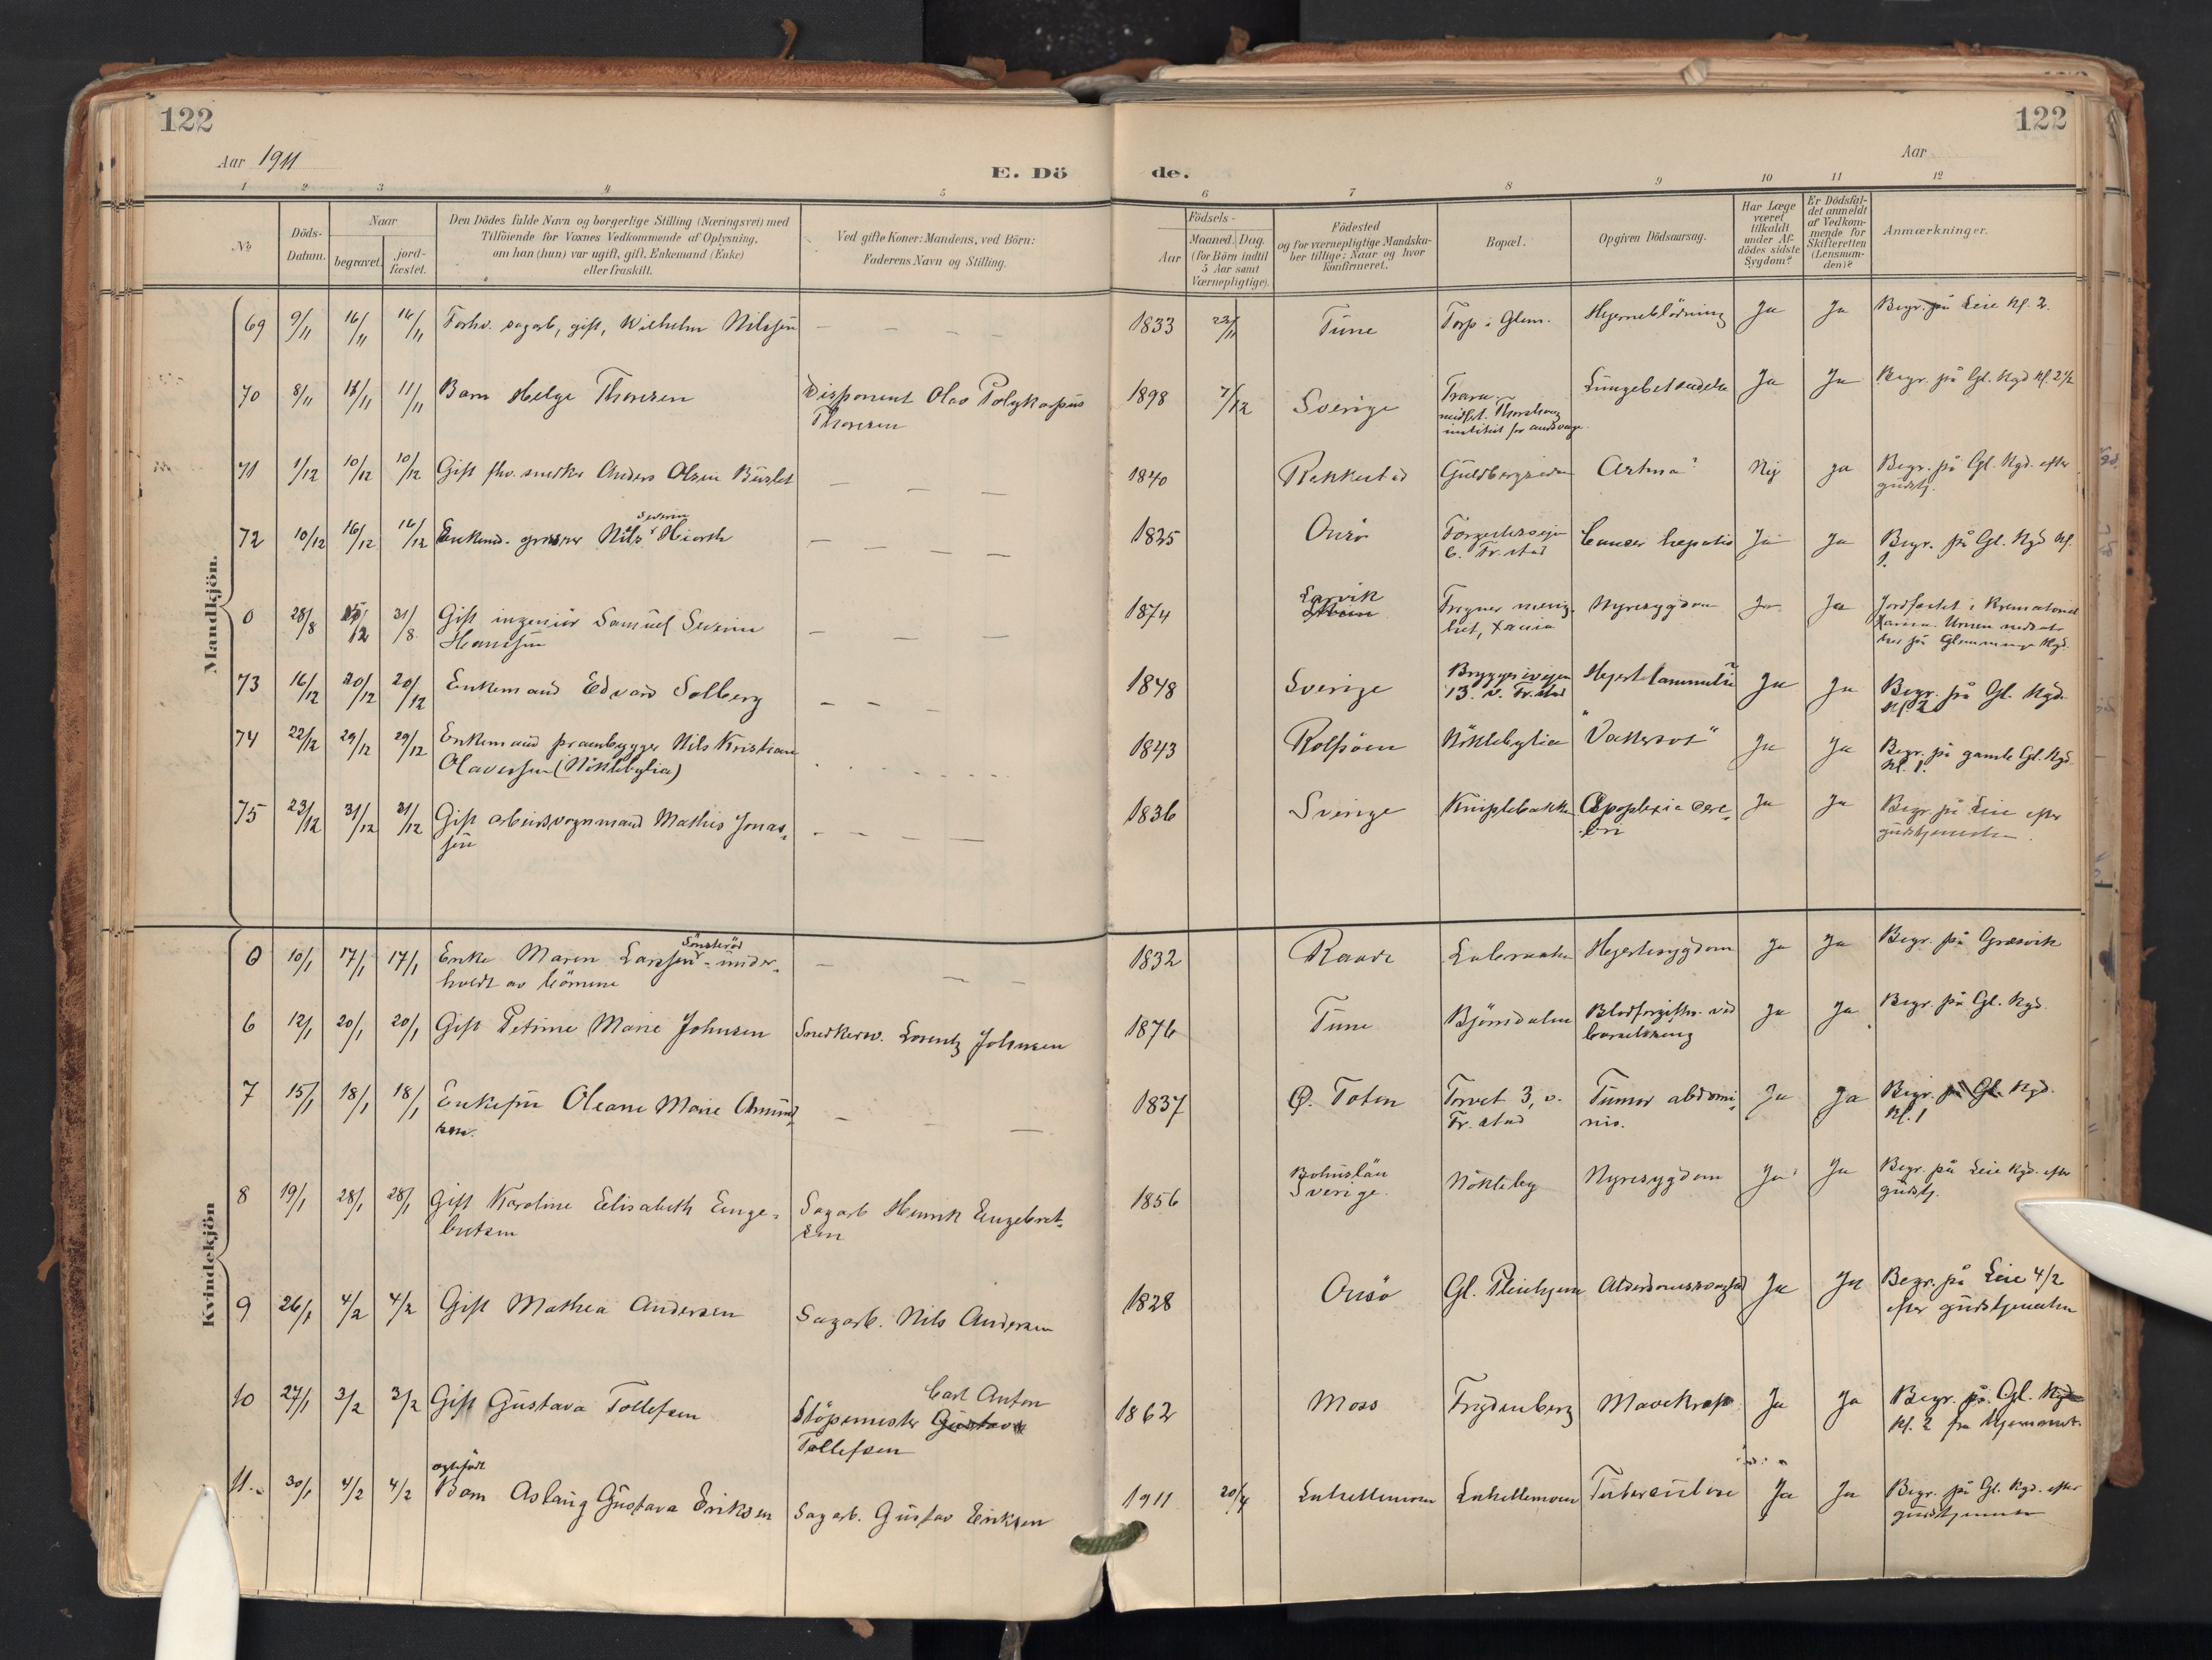 122
122
Aar 1911
Aar
E. Dö
de.
1 2 3 4 5 6 7 8 9 10 11 12
No
Döds-Datum.
Naar
begravet.
jord-fæstet.
Den Dödes fulde Navn og borgerlige Stilling (Næringsvei) med
Tilföiende for Voxnes Vedkommende af Oplysning,
om han (hun) var ugift, gift, Enkemand (Enke)
eller fraskilt.
Ved gifte Koner: Mandens, ved Börn:
Faderens Navn og Stilling.
Födsels-
Aar
Maaned. Dag.
(for Börn indtil
5 Aar samt
Værnepligtige).
Födested
og for værnepligtige Mandska-
ber tillige: Naar og hvor
konfirmeret.
Bopæl.
Opgiven Dödsaarsag.
Har Læge
været
tilkaldt
under Af-
dödes sidste
Sygdom?
Er Dödsfal-
det anmeldt
af Vedkom-
mende for
Skifteretten
(Lensman-
den)?
Anmærkninger.
Mandkjön.
69 9/11 16/11 16/11 Forhv. sagarb, gift, Wilhelm Nilssen — — — — 1833 22/11 Tune Torp i Glem. Hjerneblödning Ja Ja Begr. på Leie Kl. 2.
70 8/11 11/11 11/11 Barn Helge Thoresen Disponent Olav Polykapus
Thoresen
1898 7/12 Sverige Trara
midlert. Thorshaug
institut for åndsvage
Lungebetændelse Ja Ja Begr. på Gl. Kgd Kl. 2 1/2
71 1/12 10/12 10/12 Gift fhv. snedker Anders Olsen Buslet — — — 1840 Rakkestad Guldbergsiden Astma? Nej ja Begr. på Gl. Kgd. efter
gudstj.
72 10/12 16/12 16/12 Enkemd. grosser Nils Severin Hiorth — — — — 1835 Onsö
6. Fr.stad
Cancer hepatis Ja Ja Begr. på Gl. Kgd Kl.
1.
0 28/8 /12 31/8 Gift ingeniör Samuel Severin
Hanssen
— — — 1874 Larvik
Nyresygdom Ja Ja Jordfæstet i Krematoriet
Urnen nedsat
her på Glemminge Kgd.
73 16/12 20/12 20/12 Enkemand Edvard Solberg — — — 1848 Sverige Bryggeriveien
13. v. Fr.stad
Hjertelammelse Ja Ja Begr. på Gl. Kgd.
Kl 2
74 22/12 29/12 29/12 Enkemand prambygger Nils Kristian
Olavessen (Nöklebylia)
1843 Rolfsöen Nöklebylia "Vattersot" Ja Ja Begr. på gamle Gl. Kgd.
Kl. 1.
75 23/12 31/12 31/12 Gift arbeidsvognmand Mathis Jonas-
sen
— — — — 1836 Sverige Kniplebakken Apoplexia cere-
bri
Ja Ja Begr. på Leie efter
gudstjenesten.
Kvindekjön
0 10/1 17/1 17/1 Enke Maren Larssen Sönsteröd - under-
holdt av kömmune
— — — 1832 Raade Lahernaken Hjertesygdom Ja Ja Begr. på Græsvik
6 12/1 20/1 20/1 Gift Petrine Marie Johnsen Snedkersv. Lorentz Johnsen 1876 Tune Bjørndalen Blodforgiftn. ved
barselseng
Ja Ja Begr. på Gl. Kgd.
7 15/1 18/1 18/1 Enkefru Oleane Marie Amund-
sen.
— — — 1837 Ø. Toten Torvet 3, v.
Fr. stad
Tumor abdomi-
nis.
Ja Ja Begr. på Gl. Kgd.
Kl. 1
8 19/1 28/1 28/1 Gift Karoline Elisabeth Enge-
bretsen
Sagarb Henrik Engebret-
sen
1856 Bohuslän
Sverige.
Nökleby Nyresygdom Ja Ja Begr. på Leie Kgd. efter
gudstj.
9 26/1 4/2 4/2 Gift Mathea Andersen Sagarb. Nils Andersen 1828 Onsö Gl. Pleiehjem Alderdomssvaghed Ja Ja Begr. på Leie 4/2
efter gudstjenesten
10 27/1 3/2 3/2 Gift Gustava Tollefsen Carl Anton
Stöpemester Gustava
Tollefsen
1862 Moss Frydenberg Mavekræft Ja Ja Begr. på Gl. Kgd
Kl. 2 fra hjemmet.
11. 30/1 4/2 4/2 ægtefödt
Barn Aslaug Gustava Eriksen Sagarb. Gustav Eriksen 1911 20/4 Lahellemoen Lahellemoen Tuberculose Ja Ja Begr. på Gl. Kgd. efter
gudstjenesten